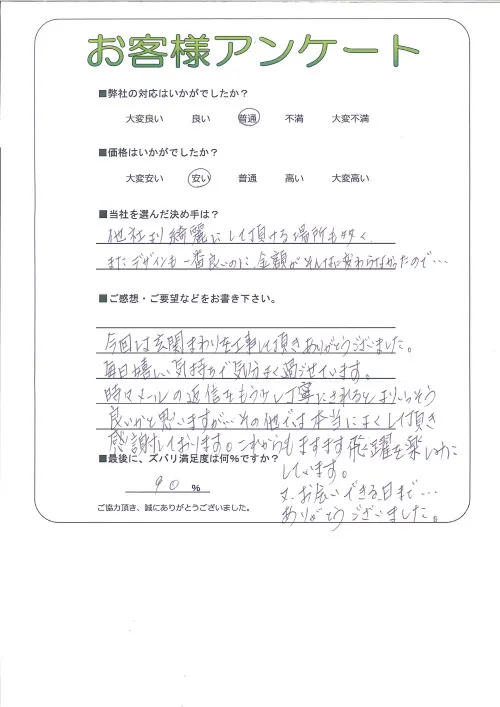 お客様アンケート
■弊社の対応はいかがでしたか？
大変良い 良い 普通 不満 大変不満
■価格はいかがでしたか？
大変安い 安い 普通 高い 大変高い
■当社を選んだ決め手は？
他社より綺麗にして頂ける場所も多く、
またデザインも一番良いのに、金額がそんなに変わらなかったので…
■ご感想・ご要望などをお書き下さい。
今回は玄関まわりを工事して頂きありがとうございました。
毎日嬉しい気持ちで気分よく過ごせています。
時々メールの返信をもう少し丁寧にされるとよりいっそう
良いかと思いますが…その他では本当によくして頂き
感謝しております。これからもますます飛躍を楽しみに
しています。
■最後に、ズバリ満足度は何%ですか？
90 %
又、お会いできる日まで…
ありがとうございました。
ご協力頂き、誠にありがとうございました。